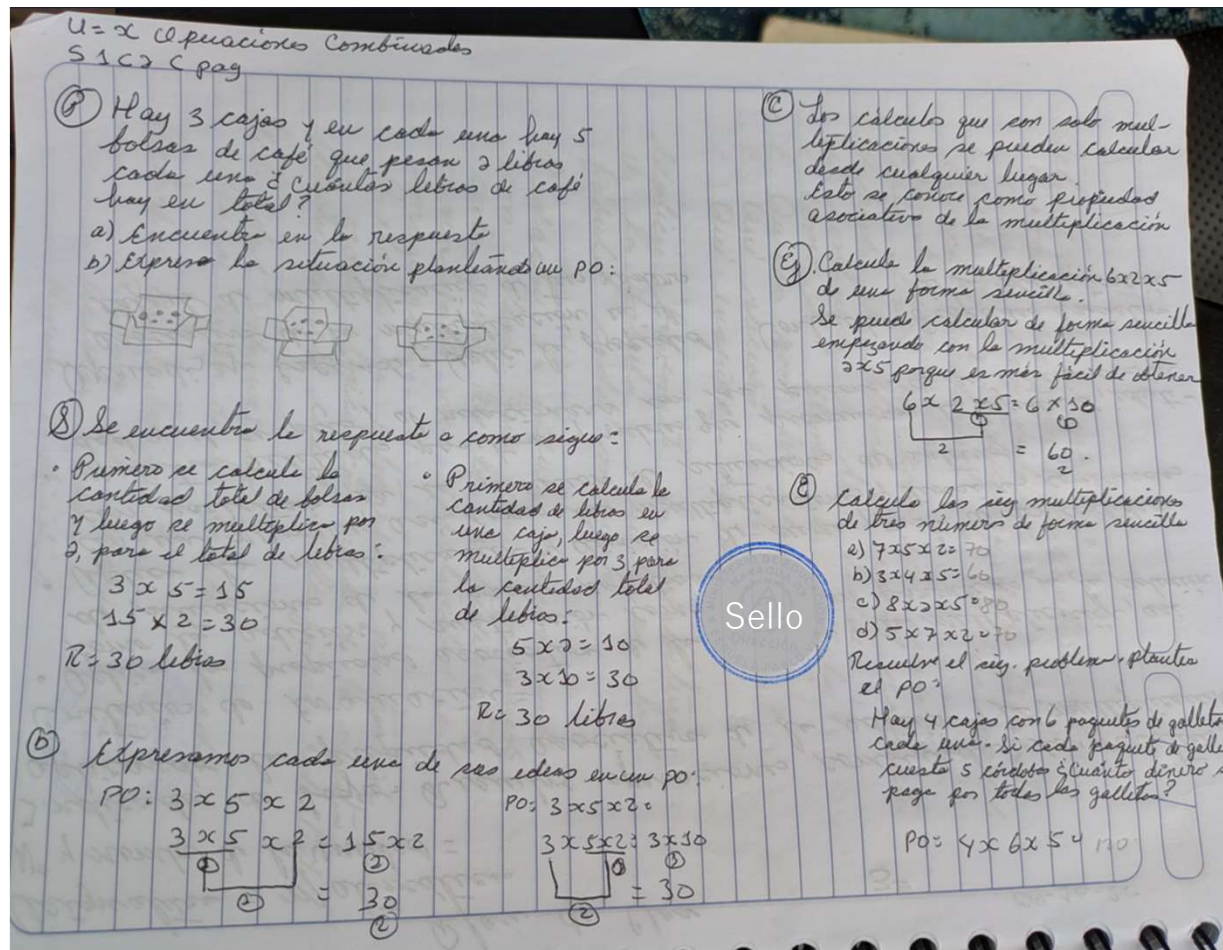 U= x Operaciones Combinadas
S 1 C 2 C pag
P Hay 3 cajas y en cada una hay 5
bolsas de café que pesan 2 libras
cada una ¿cuántas libras de café
hay en total?
a) Encuentre en la respuesta
b) Exprese la situación planteando un PO:
S Se encuentra la respuesta a como sigue:
• Primero se calcula la
cantidad total de bolsas
y luego se multiplica por
2, para el total de libras:
3 x 5 = 15
15 x 2 = 30
R= 30 libras
• Primero se calcula la
cantidad de libras en
una caja, luego se
multiplica por 3 para
la cantidad total
de libras:
5 x 2 = 10
3 x 10 = 30
R= 30 libras
Expresamos cada una de las ideas en un PO:
PO: 3 x 5 x 2
3 x 5 x 2 = 15 x 2
① ②
② = 30
②
PO: 3 x 5 x 2 =
3 x 5 x 2 = 3 x 10
① ①
② = 30
C Los cálculos que son solo mul-
tiplicaciones se pueden calcular
desde cualquier lugar.
Esto se conoce como propiedad
asociativa de la multiplicación
Ej. Calcule la multiplicación 6x2x5
de una forma sencilla.
Se puede calcular de forma sencilla
empezando con la multiplicación
2x5 porque es más fácil de obtener
6 x 2 x 5 = 6 x 10
① ①
2 = 60.
2
E Calcule las sig multiplicaciones
de tres números de forma sencilla
a) 7x5x2= 70
b) 3x4x5= 60
c) 8x2x5= 80
d) 5x7x2= 70
Sello
Resuelve el sig. problema. Plantea
el PO:
Hay 4 cajas con 6 paquetes de galletas
cada una. Si cada paquete de galle
cuesta 5 córdobas ¿Cuánto dinero s
paga por todas las galletas?
PO: 4 x 6 x 5 = 120